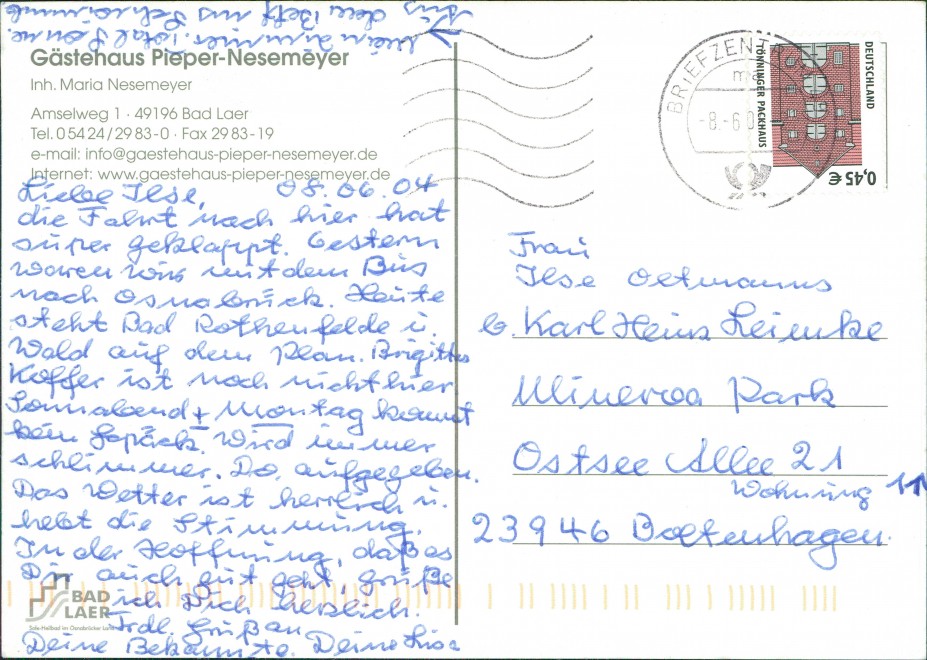 Gästehaus Pieper-Nesemeyer
Inh. Maria Nesemeyer
Amselweg 1 · 49196 Bad Laer
Tel. 0 54 24 / 29 83-0 · Fax 29 83-19
e-mail: info@gaestehaus-pieper-nesemeyer.de
Internet: www.gaestehaus-pieper-nesemeyer.de
Liebe Ilse, 08.06.04
die Fahrt nach hier hat
super geklappt. Gestern
waren wir mit dem Bus
nach Osnabrück. Heute
steht Bad Rothenfelde u.
Wald auf dem Plan. Brigittes
Koffer ist noch nicht hier
Sonnabend + Montag kommt
kein Gepäck. Wird immer
schlimmer. Do. aufgegeben.
Das Wetter ist herrlich u.
hebt die Stimmung.
In der Hoffnung, daß es
Dir auch gut geht, grüße
ich Dich herzlich.
Frdl. Gruß an
Deine Bekannte. Deine
Mein Zimmer total Sonne.
Aus dem Bett ins
BAD
LAER
Sole-Heilbad im Osnabrücker Land
BRIEFZENTR
-8.-6.0
TÖNNINGER PACKHAUS
DEUTSCHLAND
0,45 €
Frau
Ilse Oetmanns
b. Karl Heinz Leimke
Minerva Park
Ostsee Allee 21
Wohnung 11
23946 Boltenhagen